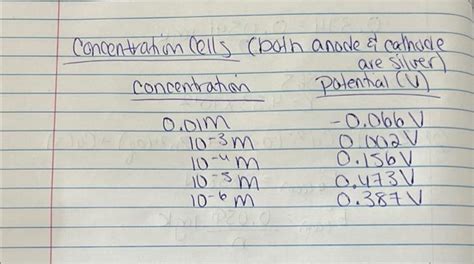 Concentration Cells (both anode & cathode
are silver)
Concentration Potential (V)
0.01M -0.066V
10⁻³M 0.002V
10⁻⁴M 0.156V
10⁻⁵M 0.473V
10⁻⁶M 0.387V